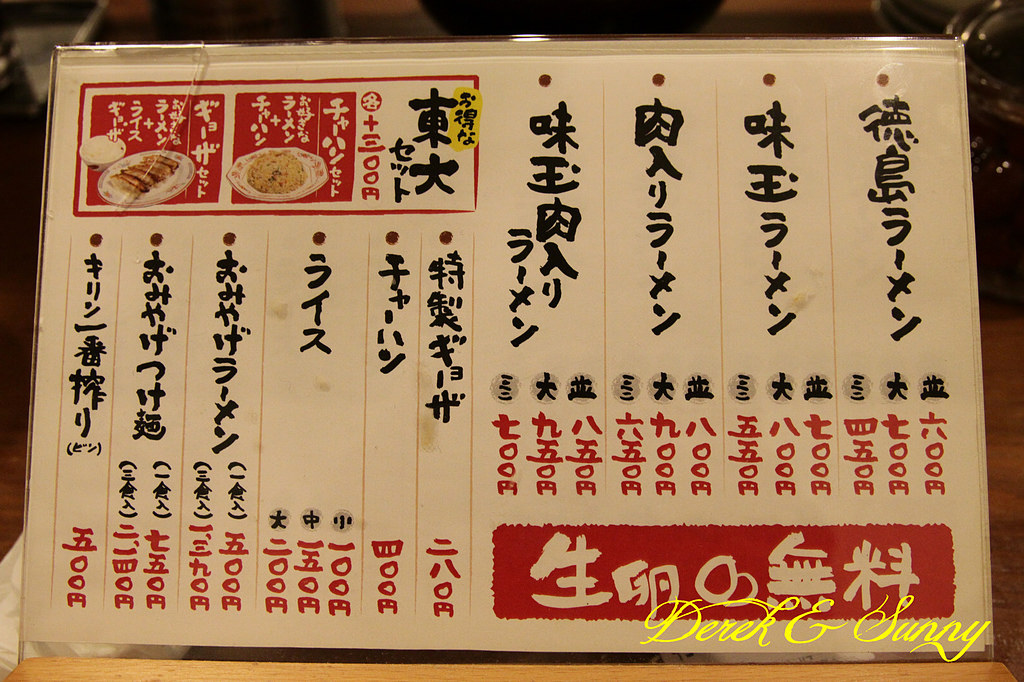 徳島ラーメン
並 六〇〇円
大 七〇〇円
ミニ 四五〇円
味玉ラーメン
並 七〇〇円
大 八〇〇円
ミニ 五五〇円
肉入りラーメン
並 八〇〇円
大 九〇〇円
ミニ 六五〇円
味玉肉入り
ラーメン
並 八五〇円
大 九五〇円
ミニ 七〇〇円
生卵〇無料
お得な
東大
セット
各+三〇〇円
チャーハンセット
お好きな
ラーメン
+
チャーハン
ギョーザセット
お好きな
ラーメン
+
ライス
+
ギョーザ
特製ギョーザ
二八〇円
チャーハン
四〇〇円
ライス
小 一〇〇円
中 一五〇円
大 二〇〇円
おみやげラーメン
(一食入) 五〇〇円
(三食入) 一、三九〇円
おみやげつけ麺
(一食入) 七五〇円
(三食入) 二、一四〇円
キリン一番搾り(ビン)
五〇〇円
Derek & Sunny